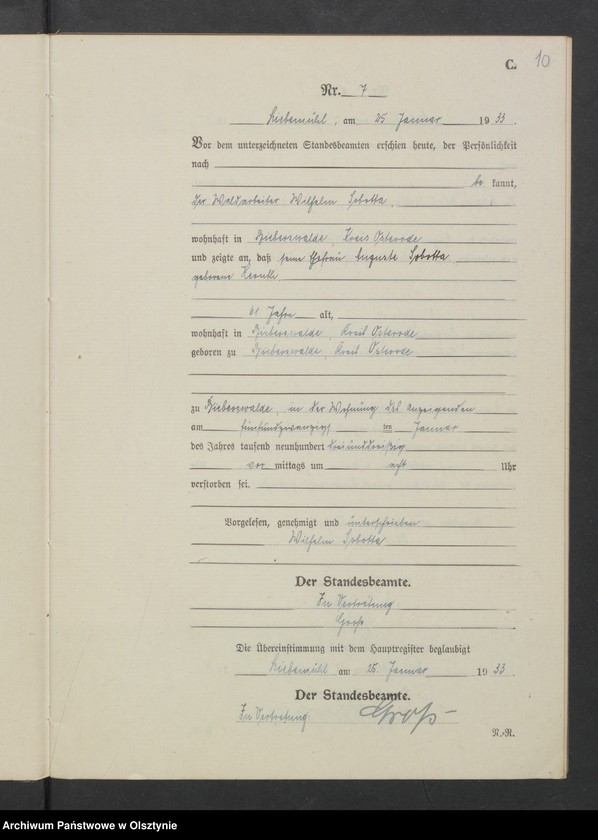 C. 10
Nr. 7
Liebemühl, am 25 Januar 1933.
Vor dem unterzeichneten Standesbeamten erschien heute, der Persönlichkeit
nach
be kannt,
der Waldarbeiter Wilhelm Sobotta.
wohnhaft in Bieberswalde, Kreis Osterode
und zeigte an, daß seine Ehefrau Auguste Sobotta
geborene
61 Jahre alt,
wohnhaft in Bieberswalde, Kreis Osterode
geboren zu Bieberswalde, Kreis Osterode
zu Bieberswalde, in der Wohnung des Anzeigenden
am fünfundzwanzigsten Januar
des Jahres tausend neunhundert dreiunddreißig
vor mittags um acht Uhr
verstorben sei.
Vorgelesen, genehmigt und unterschrieben
Wilhelm Sobotta
Der Standesbeamte.
In Vertretung
Groß
Die Übereinstimmung mit dem Hauptregister beglaubigt
Liebemühl am 25. Januar 1933
Der Standesbeamte.
In Vertretung Groß
N.-R.
Archiwum Państwowe w Olsztynie